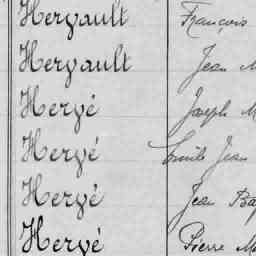 Hervault François
Hervault Jean M
Hervé Joseph M
Hervé Emile Jean
Hervé Jean Bap
Hervé Pierre M